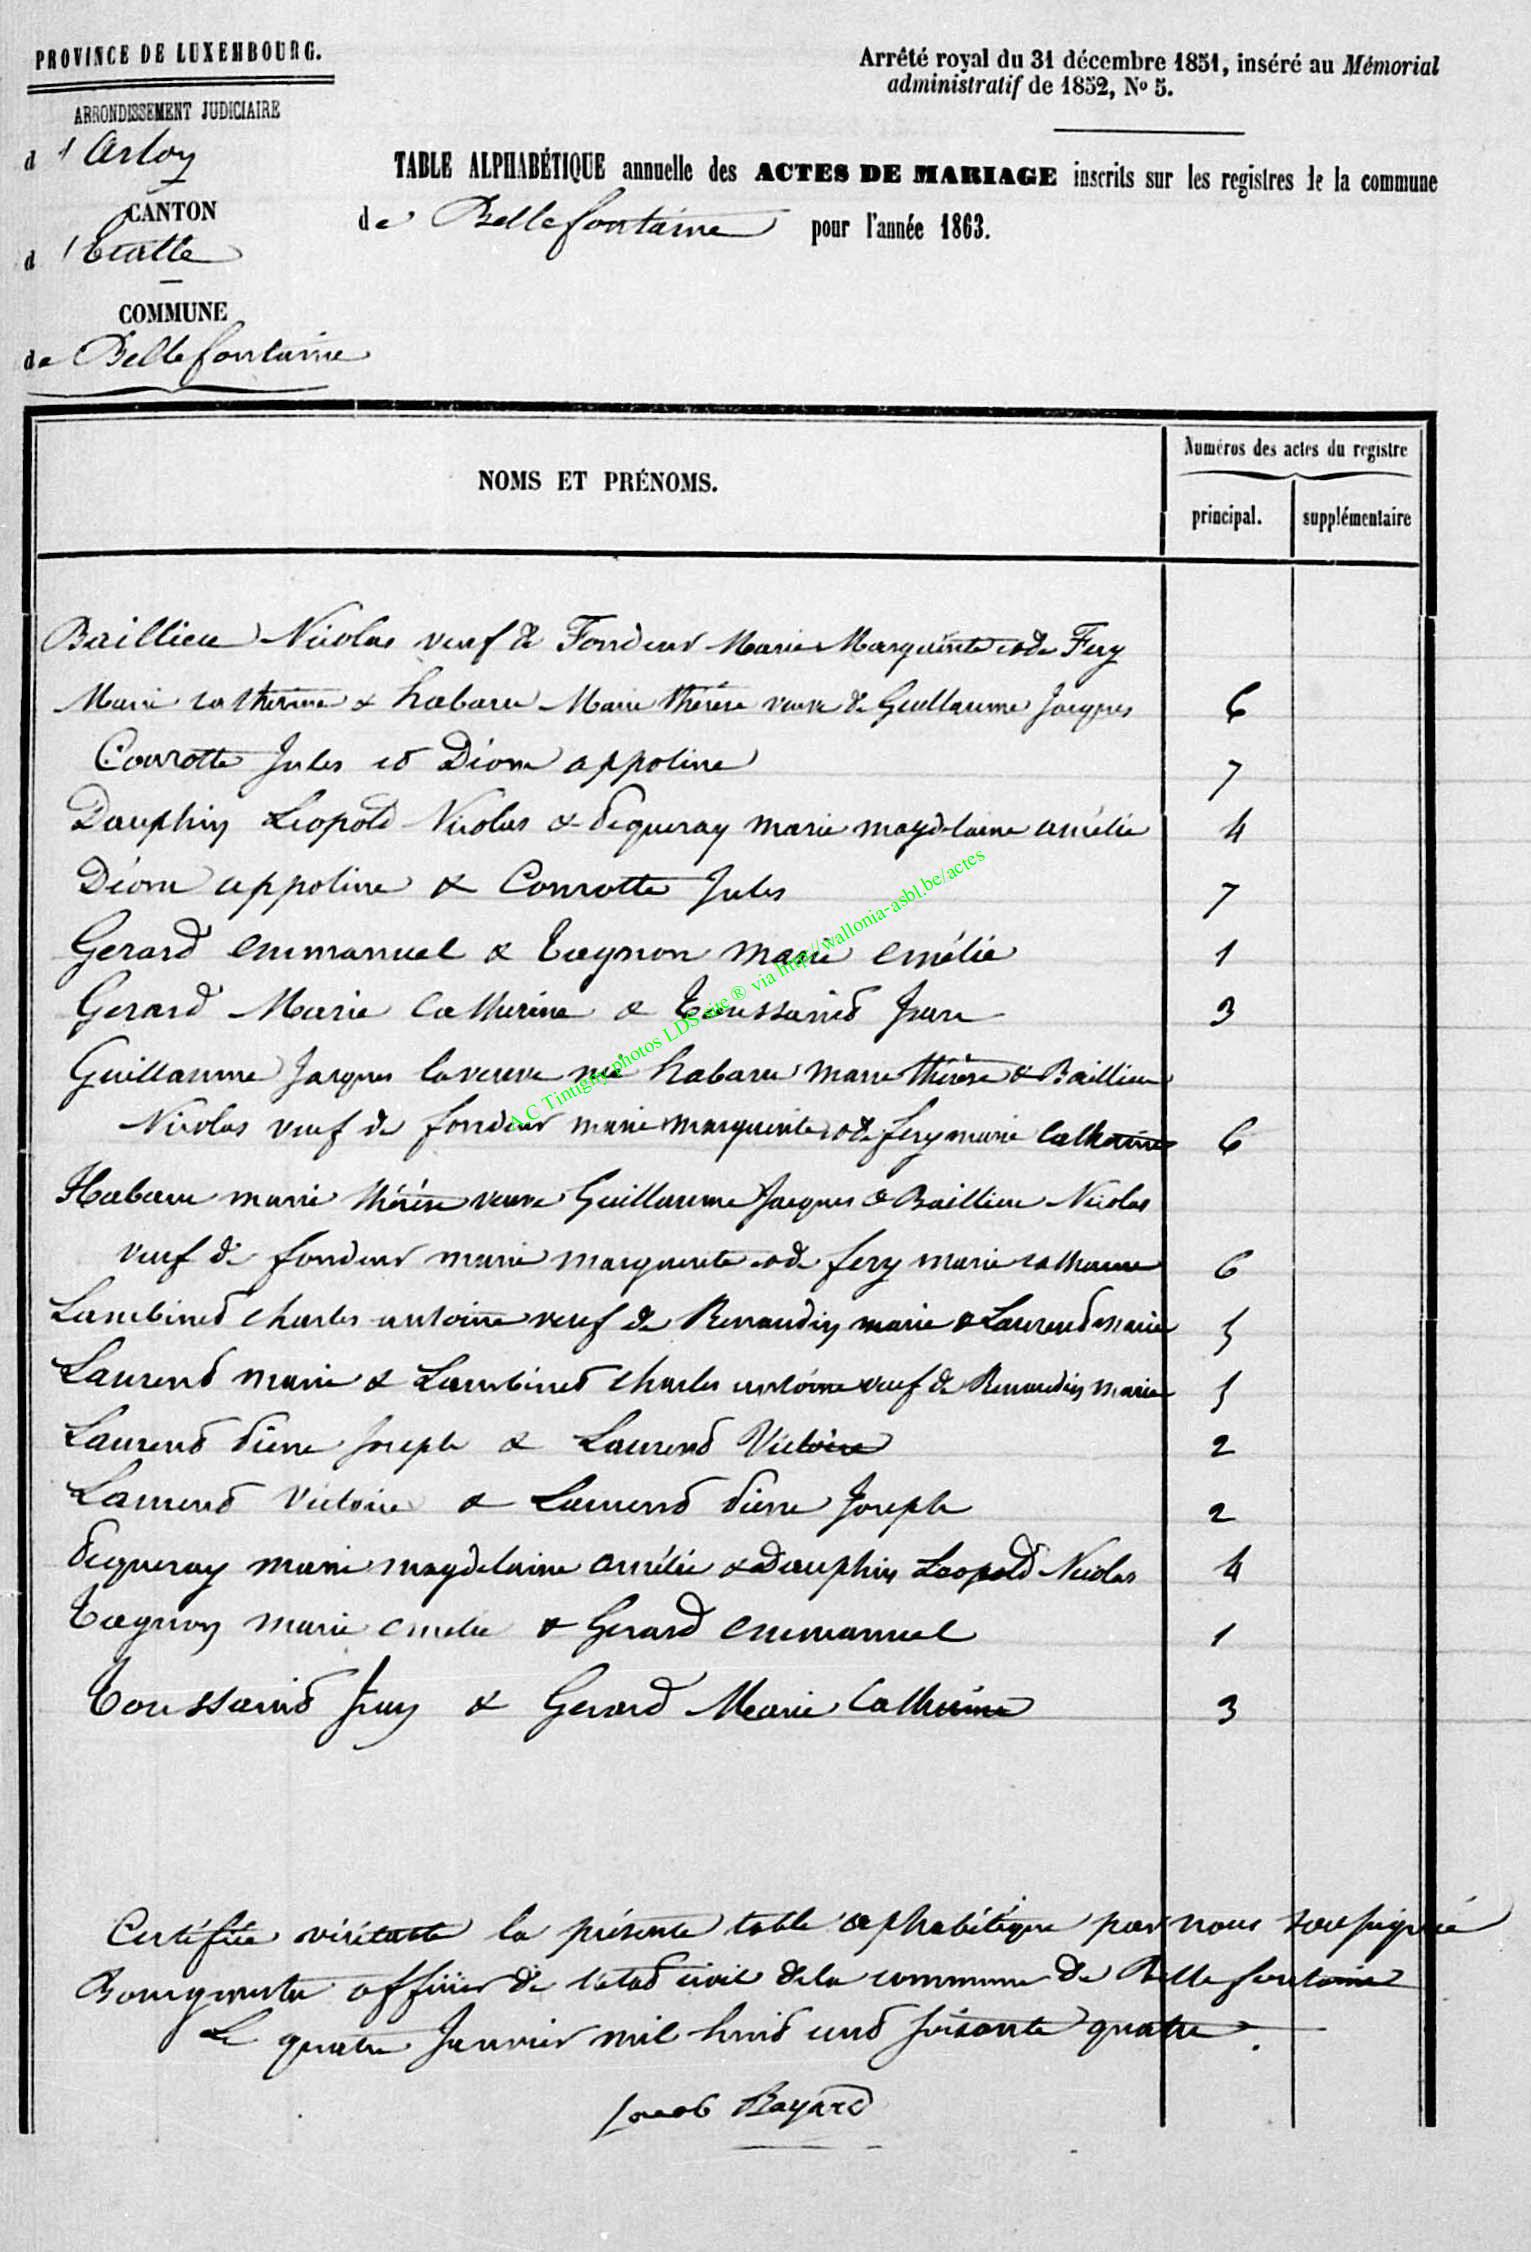 PROVINCE DE LUXEMBOURG.
Arrêté royal du 31 décembre 1851, inséré au Mémorial
administratif de 1852, No 5.
ARRONDISSEMENT JUDICIAIRE
d'Arlon
CANTON
d'Etalle
COMMUNE
de Bellefontaine
TABLE ALPHABÉTIQUE annuelle des ACTES DE MARIAGE inscrits sur les registres de la commune
de Bellefontaine pour l'année 1863.
NOMS ET PRÉNOMS.
Numéros des actes du registre
principal. supplémentaire
Baillieu Nicolas veuf de Fondeur Marie Marguerite et de Fery
Marie catherine & habaru Marie thérèse veuve de Guillaume Jacques 6
Conrotte Jules et Dion appoline 7
Dauphin Leopold Nicolas & Piqueray marie magdelaine amélie 4
Dion appoline & Conrotte Jules 7
Gerard emmanuel & Tagnon marie emélie 1
Gerard Marie Catherine & Toussaint Jean 3
Guillaume Jacques la veuve née habaru marie thérèse & Baillieu
Nicolas veuf de fondeur marie marguerite et de fery marie Catherine 6
Habaru marie thérèse veuve Guillaume Jacques & Baillieu Nicolas
veuf de fondeur marie marguerite et de fery marie catherine 6
Lambinet charles antoine veuf de Renaudin marie & Laurent marie 5
Laurent marie & Lambinet charles antoine veuf de Renaudin marie 5
Laurent Pierre Joseph & Laurent Victoire 2
Laurent Victoire & Laurent Pierre Joseph 2
Piqueray marie magdelaine amélie & Dauphin Leopold Nicolas 4
Tagnon marie emelie & Gerard emmanuel 1
Toussaint Jean & Gerard Marie Catherine 3
A.C Tintigny photos LDS site ® via http://wallonia-asbl.be/actes
Certifiée véritable la présente table alphabétique par nous soussigné
Bourgmestre officier de l'etat civil de la commune de Bellefontaine
Le quatre Janvier mil huit cent soixante quatre.
Jacob Bayard